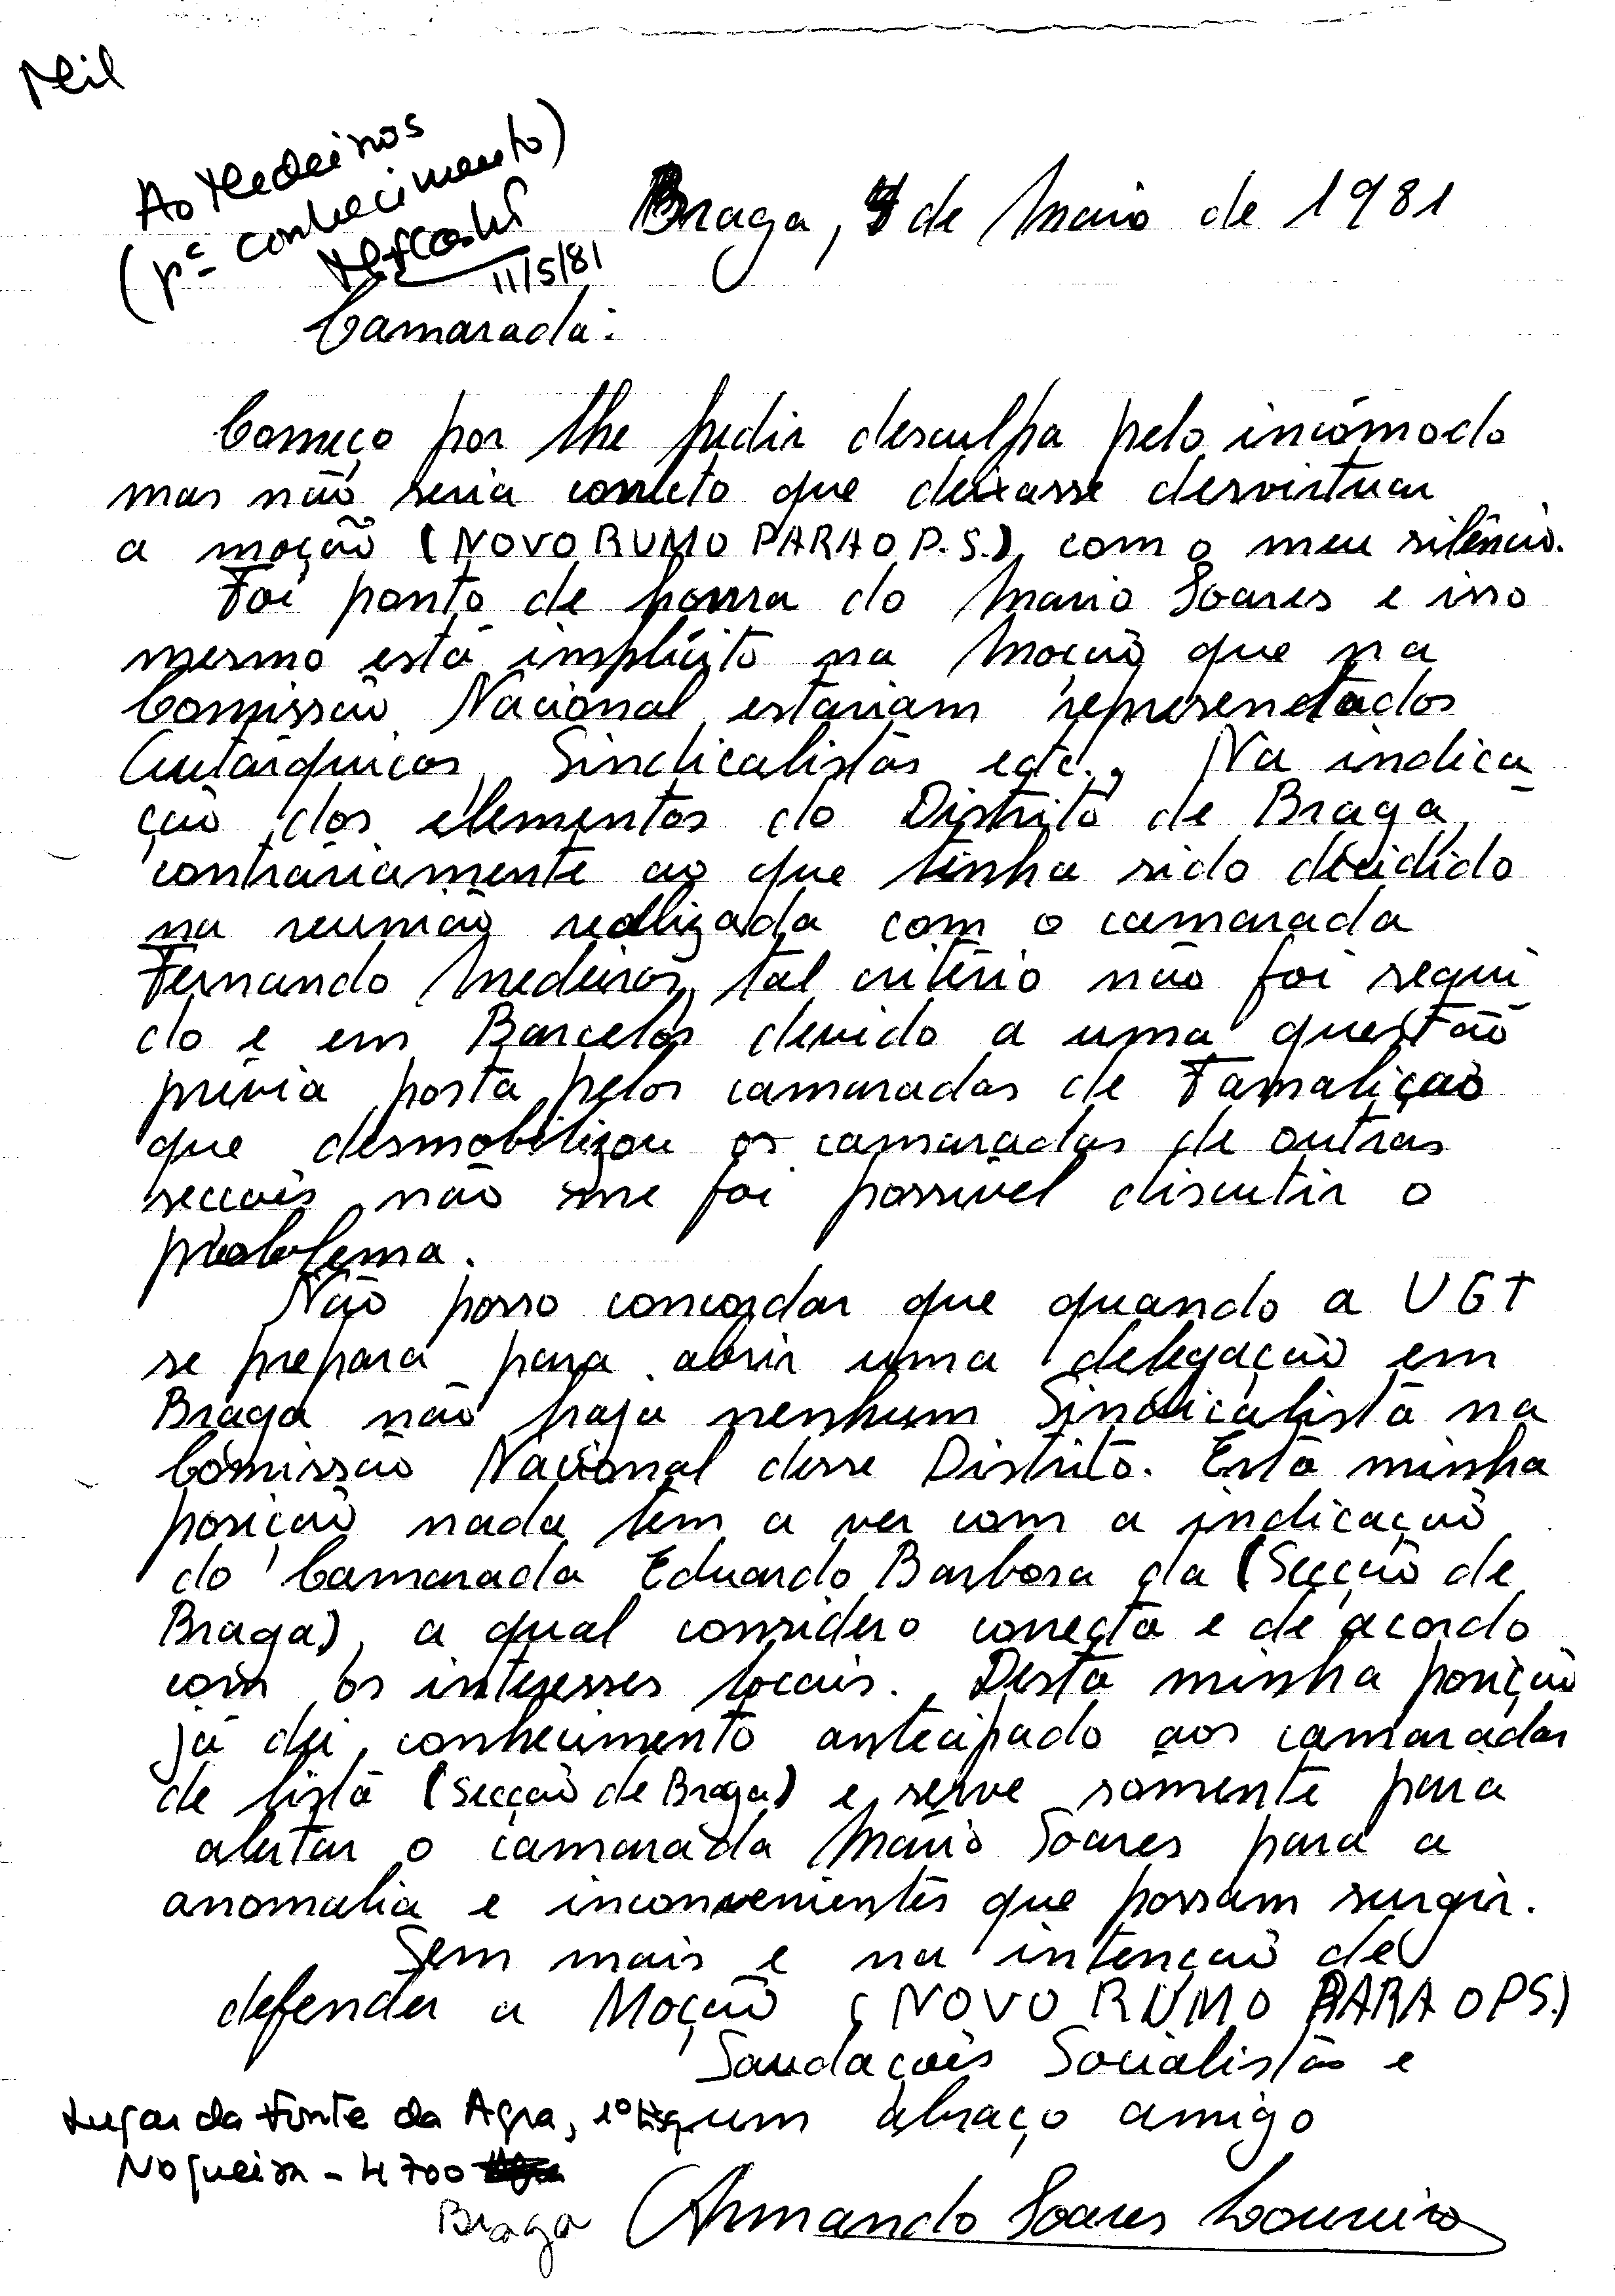 Ao Medeiros
(pª conhecimento)
11/5/81
Braga, de Maio de 1981
Camarada:
Começo por lhe pedir desculpa pelo incómodo
mas não seria correcto que deixasse desvirtuar
a moção (NOVO RUMO PARA O P.S.), com o meu silêncio.
Foi ponto de honra do Mário Soares e isso
mesmo está implícito na Moção que na
Comissão Nacional estariam representados
Autárquicos, Sindicalistas etc., Na indica
ção dos elementos do Distrito de Braga,
contráriamente ao que tinha sido decidido
na reunião realizada com o camarada
Fernando Medeiros, tal critério não foi segui
do e em Barcelos devido a uma questão
prévia posta pelos camaradas de Famalicão
que desmobilizou os camaradas de outras
secções não me foi possível discutir o
problema.
Não posso concordar que quando a UGT
se prepara para abrir uma delegação em
Braga não haja nenhum Sindicalista na
Comissão Nacional desse Distrito. Esta minha
posição nada tem a ver com a indicação
do Camarada Eduardo Barbosa da (Secção de
Braga), a qual considero correcta e de acordo
com os interesses locais. Desta minha posição
já dei conhecimento antecipado aos camaradas
de lista (Secção de Braga) e serve sómente para
alertar o camarada Mário Soares para a
anomalia e inconvenientes que possam surgir.
Sem mais e na intenção de
defender a Moção (NOVO RUMO PARA O PS.)
Saudações Socialistas e
um abraço amigo
Lugar da Fonte da Agra, 1º
Nogueira - 4700
Braga
Armando Soares Loureiro